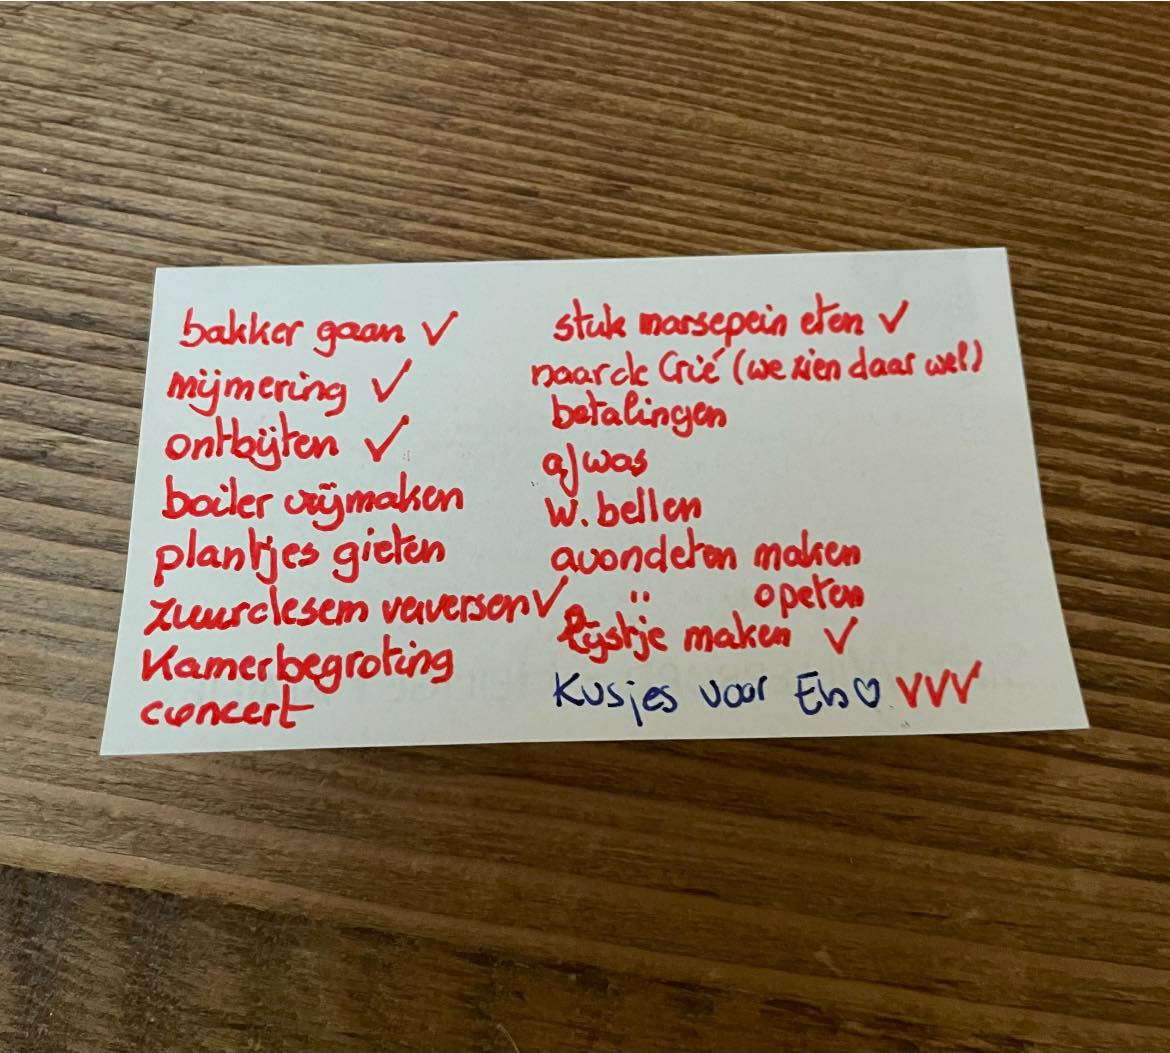 bakker gaan ✓
mijmering ✓
ontbijten ✓
boiler vrijmaken
plantjes gieten
zuurdesem verversen ✓
Kamerbegroting
concert
stuk marsepein eten ✓
naar de Crié (we zien daar wel)
betalingen
afwas
w. bellen
avondeten maken
" opeten
lijstje maken ✓
Kusjes voor ♡ VVV